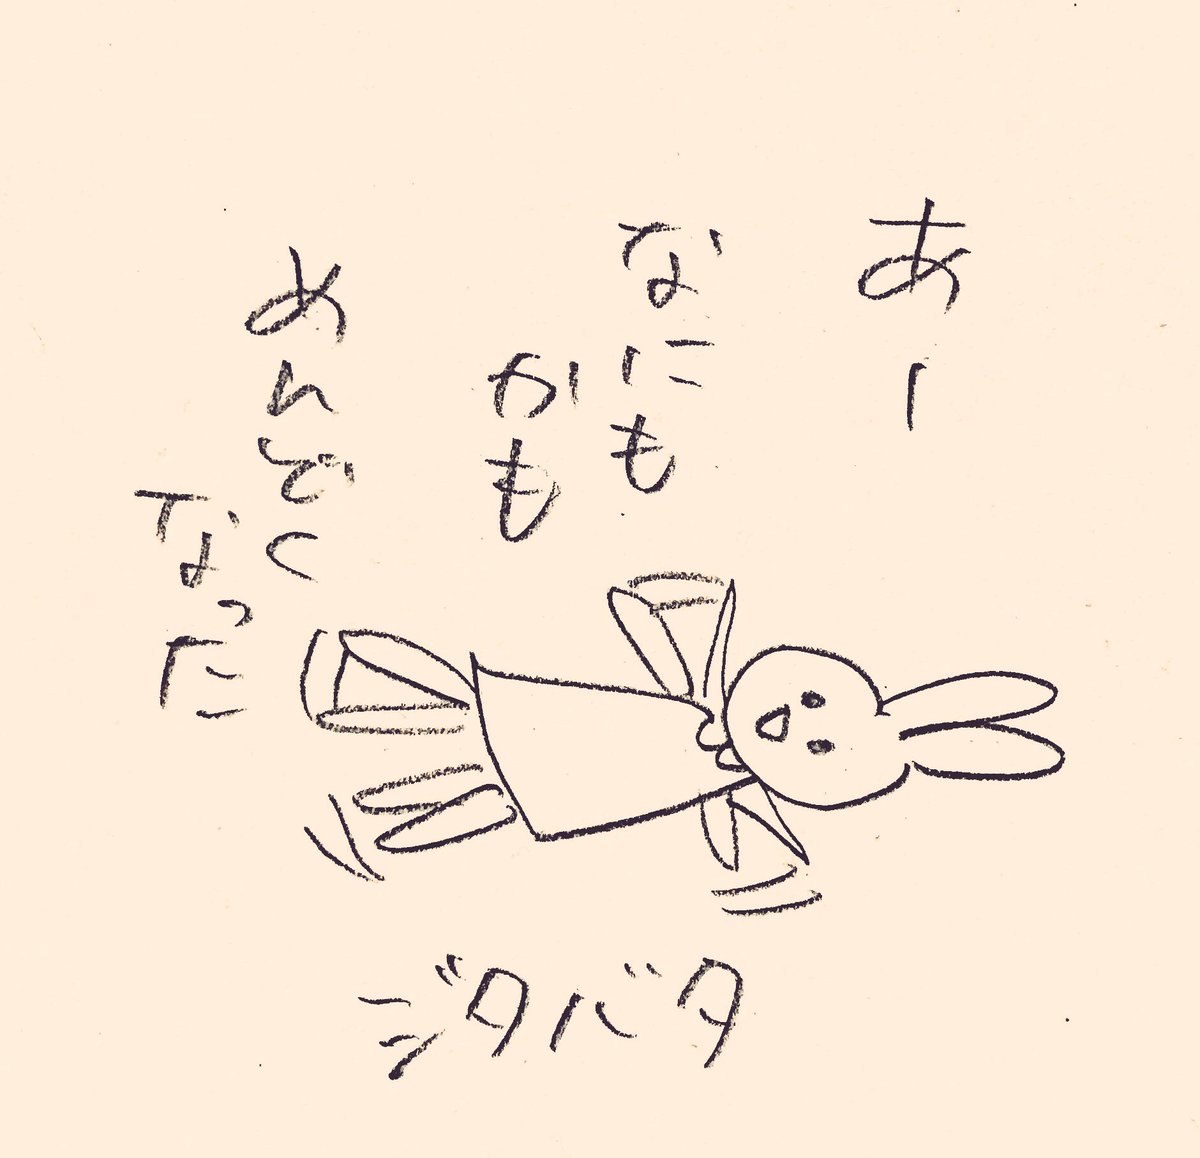 あー
なにも
かも
めんどく
なった
ジタバタ